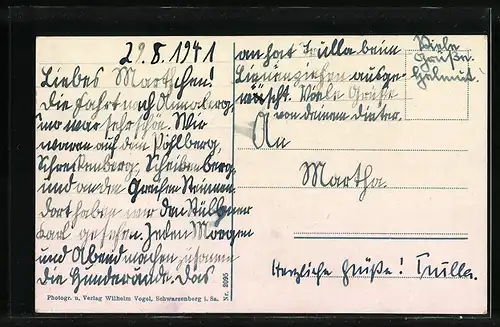 29.8.1941
Liebes Martchen!
Die Fahrt nach Annaberg
war sehr schön. Wir
waren auf dem Pöhlberg,
Schreckenberg, Scheibenberg,
und an den Steinen.
dort haben wir den Stülpner
Karl gesehen. Jeden Morgen
und Abend machen zusammen
die Hunderunde. Das
an hat Trulla beim
Linienziehen ausge-
wischt. Viele Grüße
von deinem Dieter.
Viele
Grüße.
Helmut!
An
Martha.
Herzliche Grüße! Trulla.
Photogr. u. Verlag Wilhelm Vogel, Schwarzenberg i. Sa.
Nr. 2095